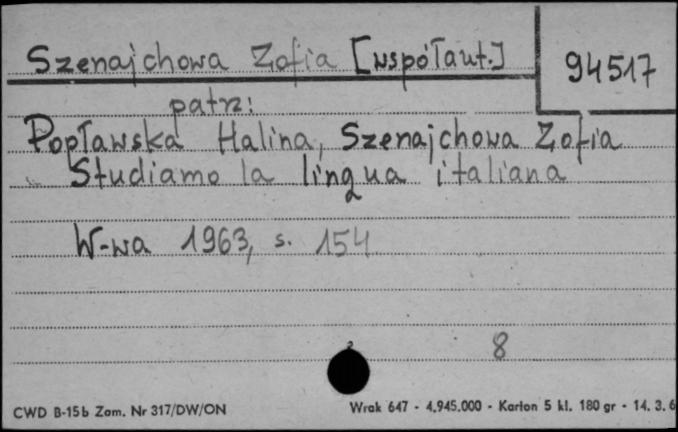 Szenajchowa Zofia [współaut.]
94517
patrz:
Popławska Halina, Szenajchowa Zofia
Studiamo la lingua italiana
W-wa 1963, s. 154
8
CWD B-15b Zam. Nr 317/DW/ON
Wrak 647 - 4.945.000 - Karton 5 kl. 180 gr - 14. 3. 6